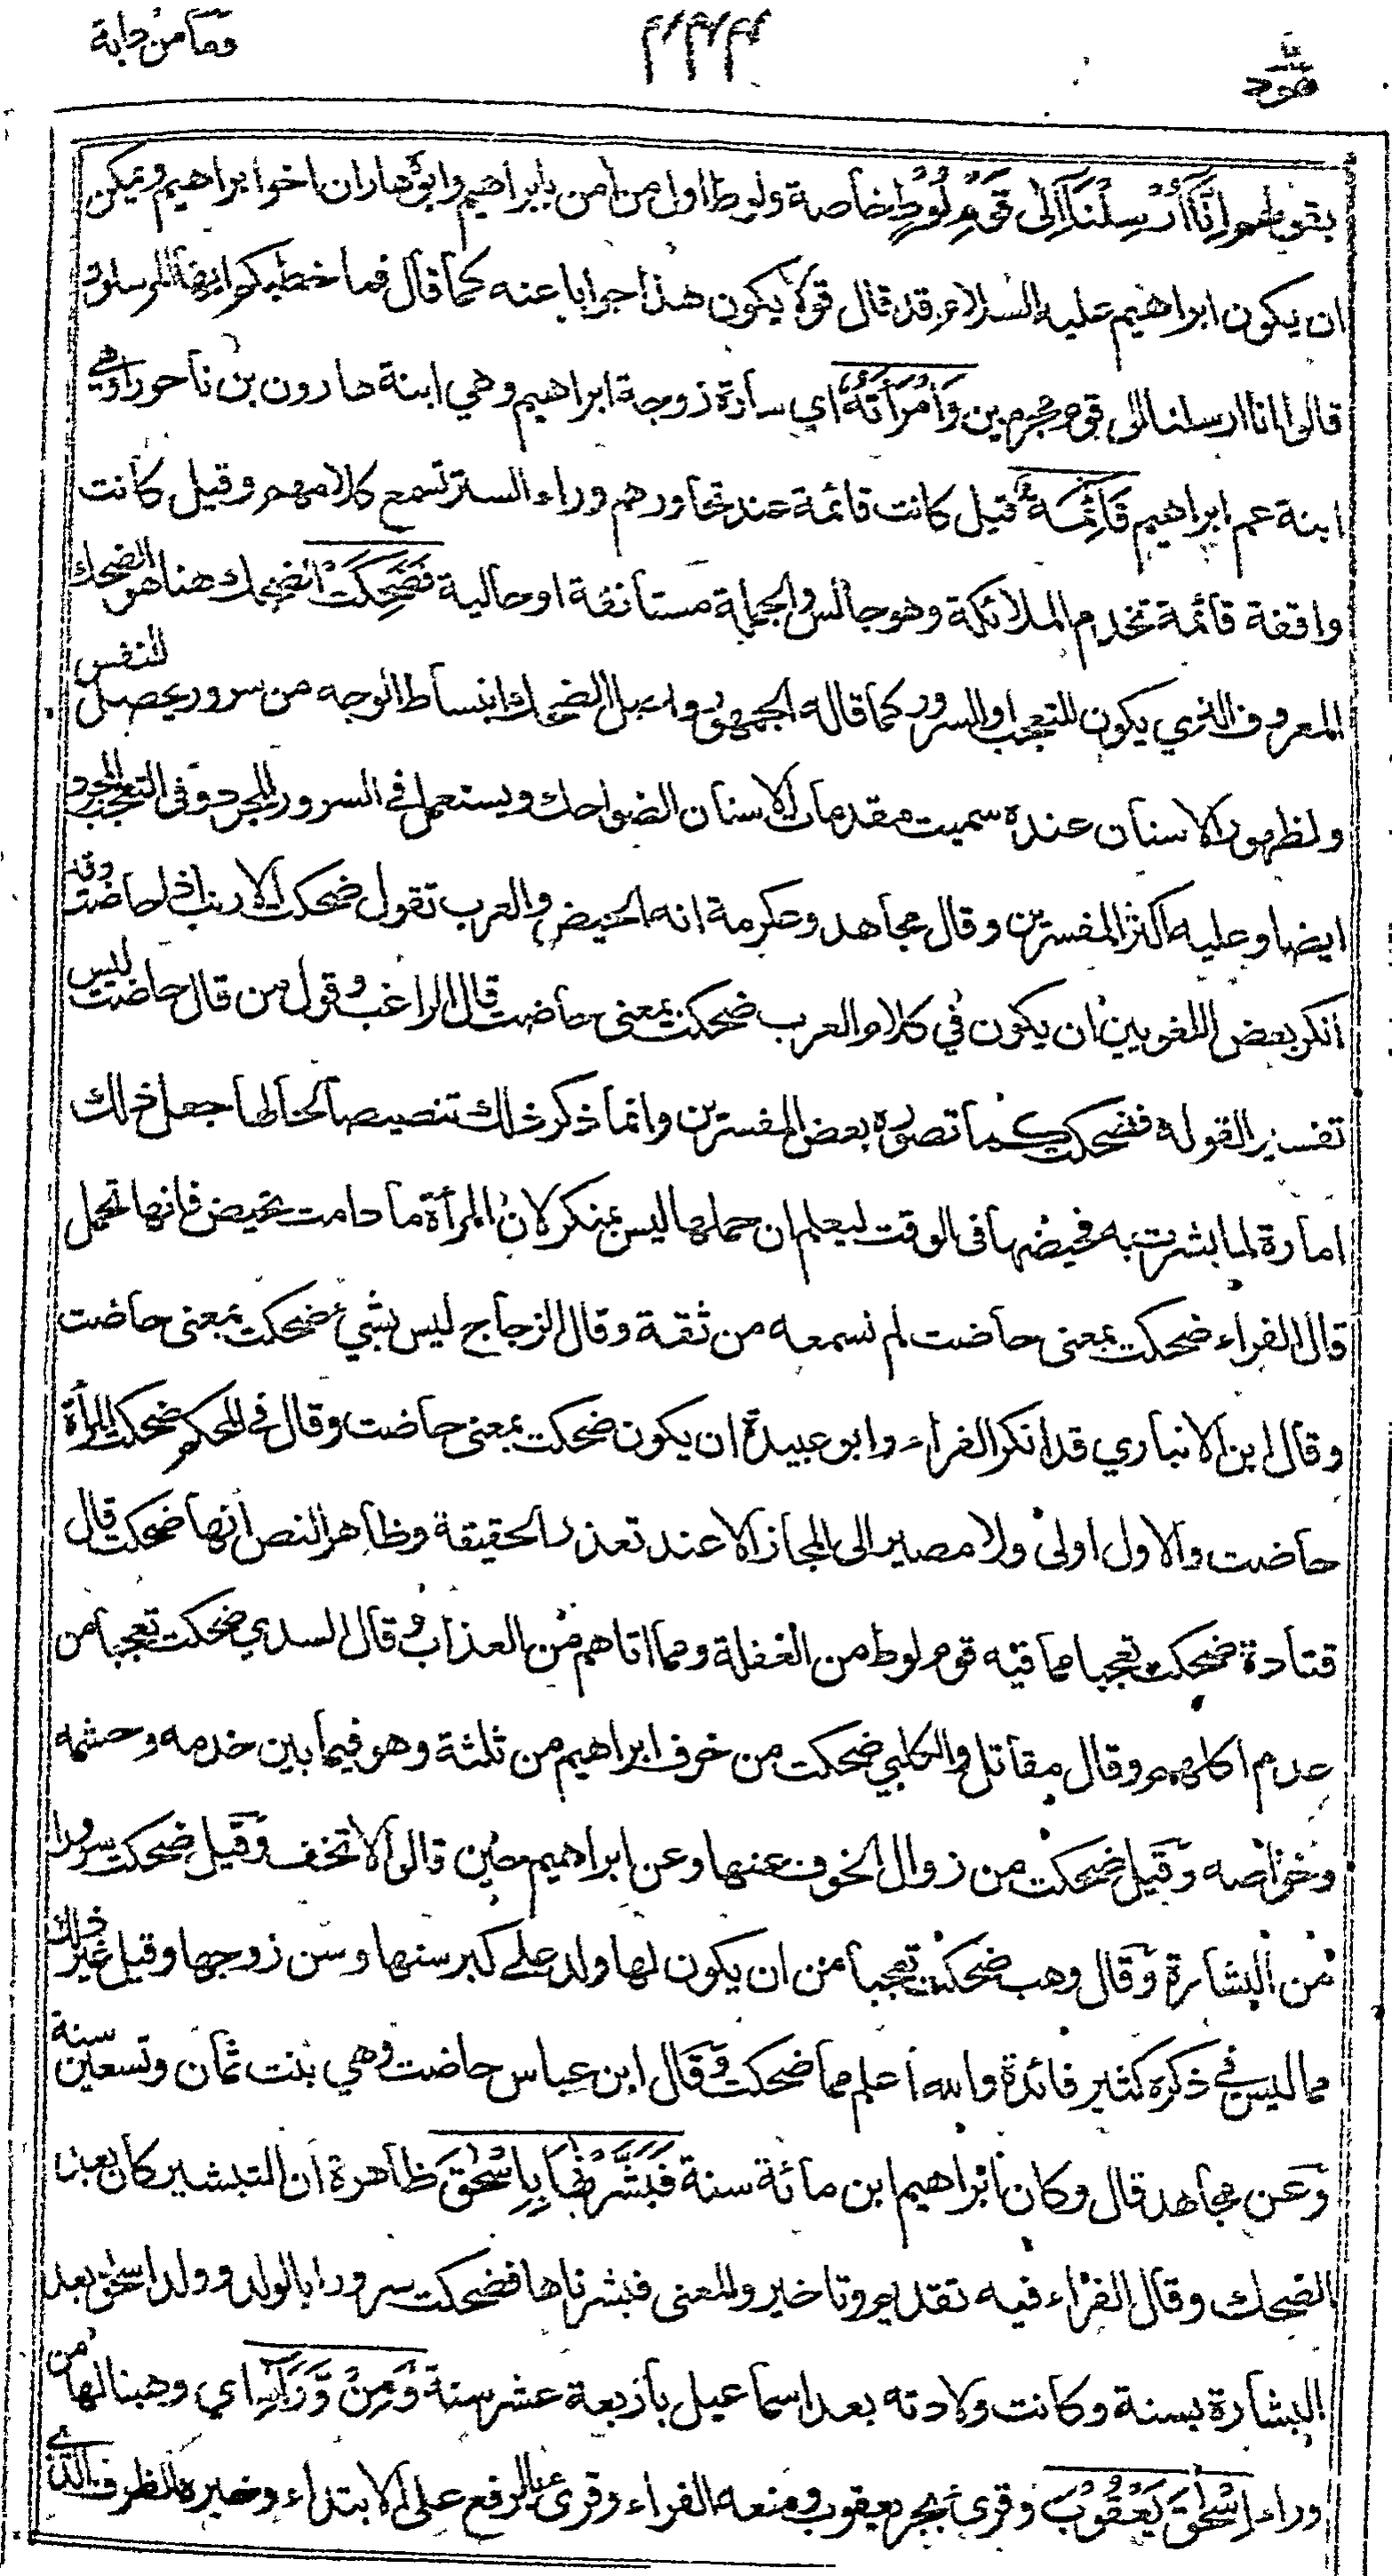 هود
٤٣٤
وما من دابة
بقولهم إِنَّا أُرْسِلْنَا إِلَى قَوْمِ لُوطٍ خاصة ولوط اول من امن بابراهيم وابوه هاران اخو ابراهيم ويمكن
ان يكون ابراهيم عليه السلام قد قال قولا يكون هذا جوابا عنه كما قال فما خطبكم ايها المرسلون
قالوا انا ارسلنا الى قوم مجرمين وَامْرَأَتُهُ اي سارة زوجة ابراهيم وهي ابنة هارون بن ناحورا وهي
ابنة عم ابراهيم قَائِمَةٌ قيل كانت قائمة عند تحاورهم وراء الستر تسمع كلامهم وقيل كانت
واقفة قائمة تخدم الملائكة وهو جالس والجملة مستأنفة او حالية فَضَحِكَتْ الضحك هنا هو الضحك
المعروف الذي يكون للتعجب او السرور كما قاله الجمهور واصل الضحك انبساط الوجه من سرور يحصل للنفس
ولظهور الاسنان عنده سميت مقدمات الاسنان الضواحك ويستعمل في السرور المجرد وفى التعجب المجرد
ايضا وعليه اكثر المفسرين وقال مجاهد وعكرمة انه الحيض والعرب تقول ضحكت الارنب اذا حاضت وقد
انكر بعض اللغويين ان يكون في كلام العرب ضحكت بمعنى حاضت قال الراغب وقول من قال حاضت ليس
تفسير القوله فضحكت كما تصوره بعض المفسرين وانما ذكر ذلك تنصيصا لحالها جعل ذلك
امارة لما بشرت به فحيضها فى الوقت ليعلم ان حملها ليس بمنكر لان المرأة ما دامت تحيض فانها تحمل
قال الفراء ضحكت بمعنى حاضت لم نسمعه من ثقة وقال الزجاج ليس بشيء ضحكت بمعنى حاضت
وقال ابن الانباري قد انكر الفراء وابو عبيدة ان يكون ضحكت بمعنى حاضت وقال في المحكم ضحكت المرأة
حاضت والاول اولى ولا مصير الى المجاز الا عند تعذر الحقيقة وظاهر النص انها ضحكت قال
قتادة ضحكت تعجبا مما فيه قوم لوط من الغفلة ومما اتاهم من العذاب وقال السدي ضحكت تعجبا من
عدم اكلهم وقال مقاتل والكلبي ضحكت من خوف ابراهيم من ثلثة وهو فيما بين خدمه وحشمه
وخواصه وقيل ضحكت من زوال الخوف عنها وعن ابراهيم حين قالوا لا تخف وقيل ضحكت سرورا
من البشارة وقال وهب ضحكت تعجبا من ان يكون لها ولد على كبر سنها وسن زوجها وقيل غير ذلك
مما ليس في ذكره كثير فائدة والله اعلم مما ضحكت وقال ابن عباس حاضت وهي بنت ثمان وتسعين سنة
وعن مجاهد قال وكان ابراهيم ابن مائة سنة فَبَشَّرْنَاهَا بِإِسْحٰقَ ظاهرة ان التبشير كان بعد
الضحك وقال الفراء فيه تقديم وتاخير والمعنى فبشرناها فضحكت سرورا بالولد وولد اسحٰق بعد
البشارة بسنة وكانت ولادته بعد اسماعيل باربعة عشر سنة وَمِنْ وَّرَاءِ اي وهبنا لها من
وراء إِسْحٰقَ يَعْقُوبَ وقرئ بجر يعقوب ومنعه الفراء وقرئ بالرفع على الابتداء وخبره الظرف الذي